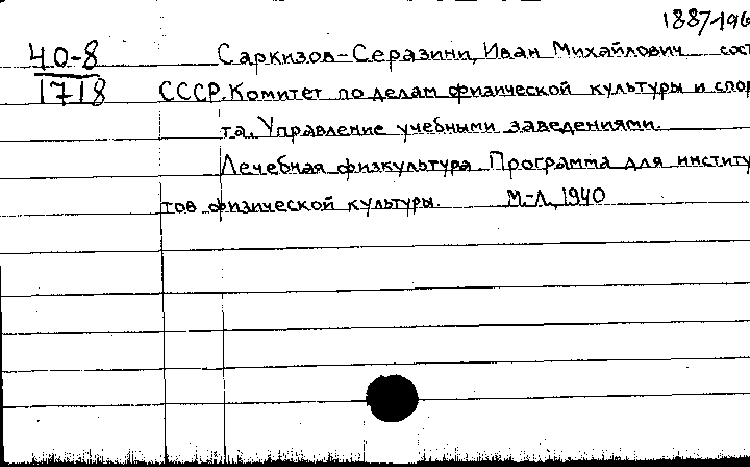 1887-196
40-8 Саркизов-Серазини, Иван Михайлович сост
1718 СССР. Комитет по делам физической культуры и спор
та. Управление учебными заведениями.
Лечебная физкультура. Программа для институ
тов физической культуры. М-Л, 1940